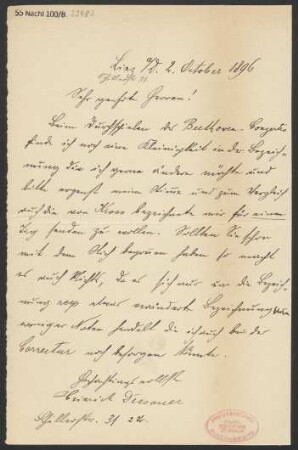 55 Nachl 100/B.
Linz a/D. 2. October 1896
Sehr geehrte Herren!
Beim Durchspielen des Beethoven-Conzertes
finde ich noch eine Kleinigkeit in der Bezeich-
nung die ich gerne ändern möchte und
bitte ergebenst meine Stimme und zum Vergleich
auch die von Kross bezeichnete mir für einen
Tag senden zu wollen. Sollten Sie schon
mit dem Stich begonnen haben so macht
es auch Nichts, da es sich nur um die Bezeich-
nung resp. etwas veränderte Bezeichnung
weniger Noten handelt die ich auch bei der
Correctur noch besorgen könnte.
Hochachtungsvollst
Heinrich Dessauer
Schillerstr. 31